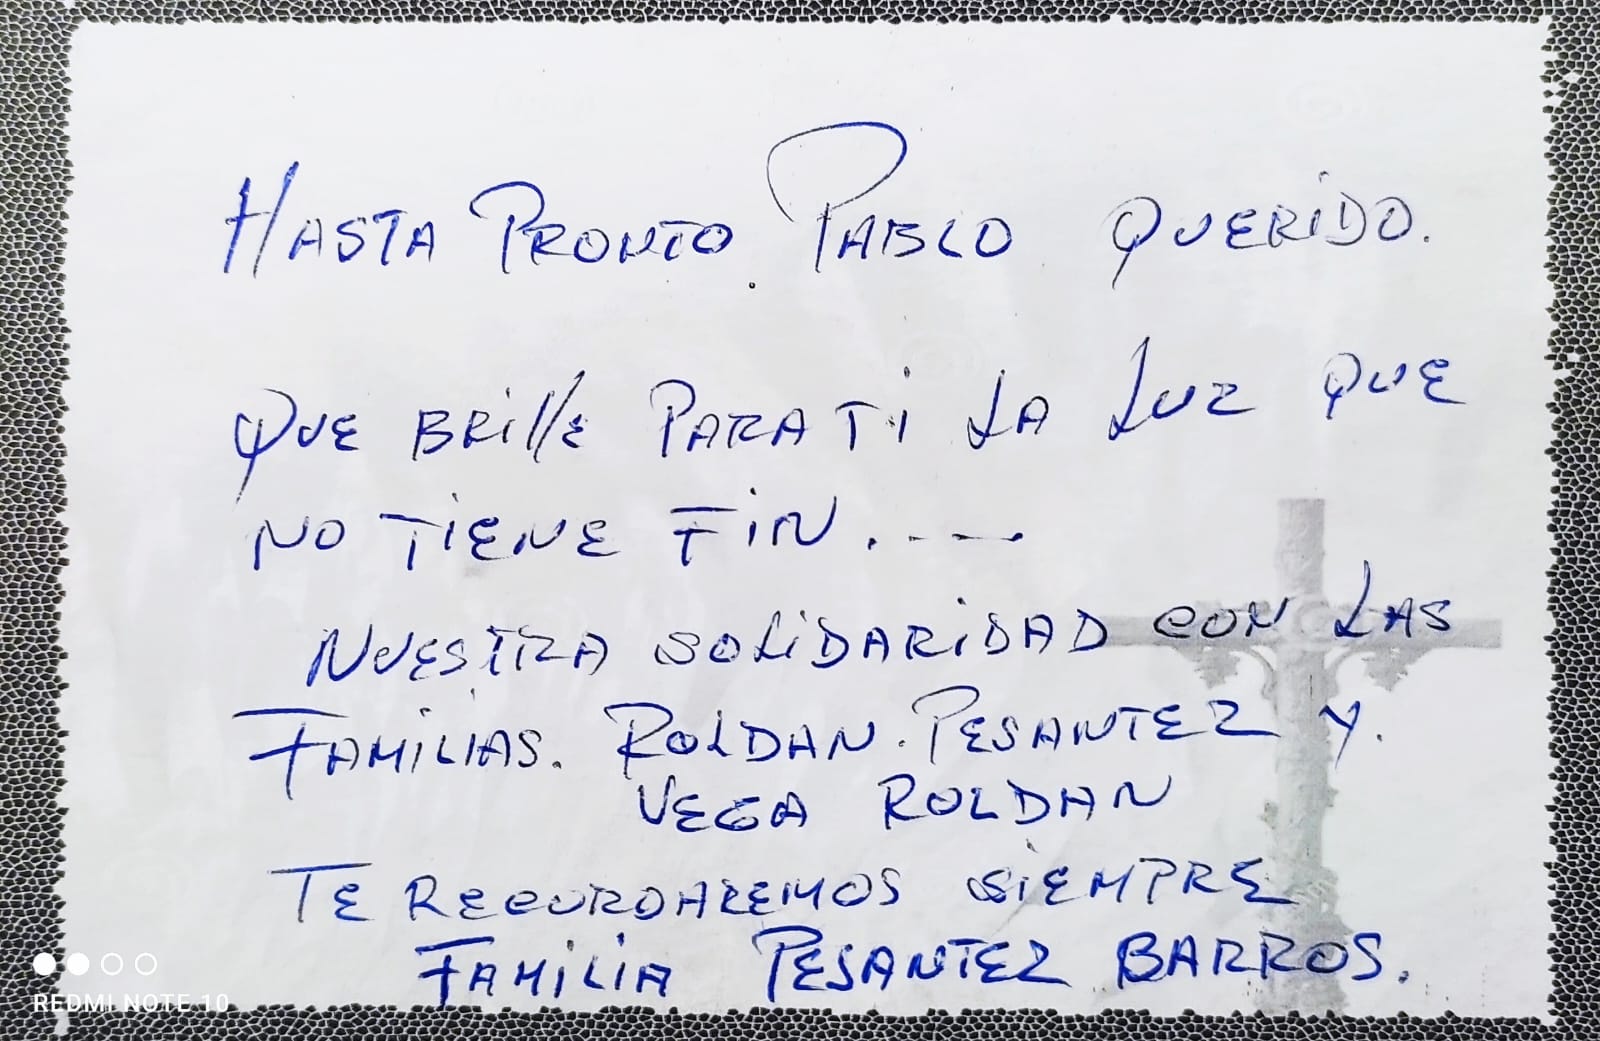 HASTA PRONTO. PABLO QUERIDO.
QUE BRILLE PARA TI LA LUZ QUE
NO TIENE FIN. ---
NUESTRA SOLIDARIDAD CON LAS
FAMILIAS. ROLDAN. PESANTEZ Y.
VEGA ROLDAN
TE RECORDAREMOS SIEMPRE
FAMILIA PESANTEZ BARROS.
REDMI NOTE 10